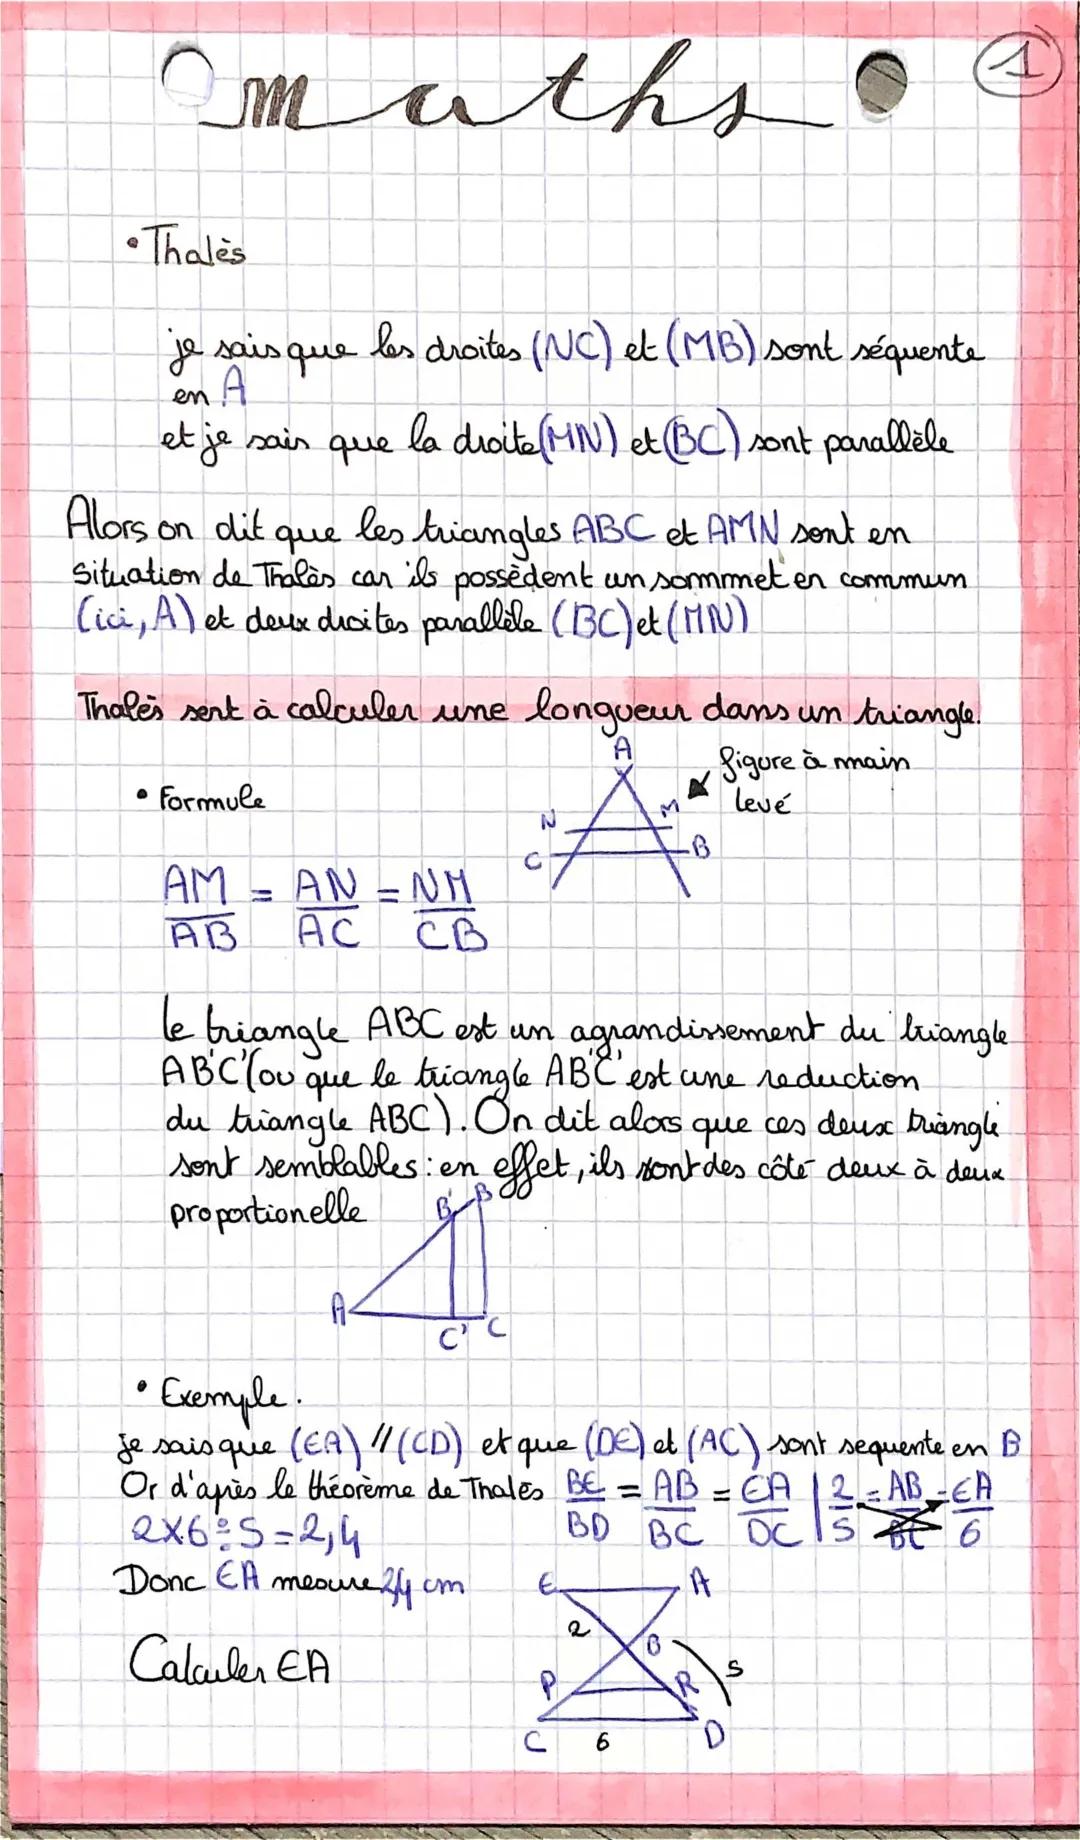 1
maths
• Thalès
je sais que les droites (NC) et (MB) sont séquente
en A
et je sais que la droite (MN) et (BC) sont parallèle
Alors on dit que les triangles ABC et AMN sont en
situation de Thalès car ils possèdent un sommmet en commun
(ici, A) et deux droites parallèle (BC) et (MN)
Thalès sert à calculer une longueur dans un triangle.
A
figure à main
levé
• Formule
N M
C B
AM/AB = AN/AC = NM/CB
le triangle ABC est un agrandissement du triangle
AB'C' (ou que le triangle AB'C' est une reduction
du triangle ABC). On dit alors que ces deux triangle
sont semblables : en effet, ils sont des côté deux à deux
proportionelle
B' B
A
C' C
• Exemple.
je sais que (EA) // (CD) et que (DE) et (AC) sont sequente en B
Or d'après le théorème de Thalès BE/BD = AB/BC = EA/DC | 2/5 = AB/BC = EA/6
2×6÷5 = 2,4
Donc EA mesure 2,4 cm
E A
2
B
Calculer EA
5
P R
C 6 D